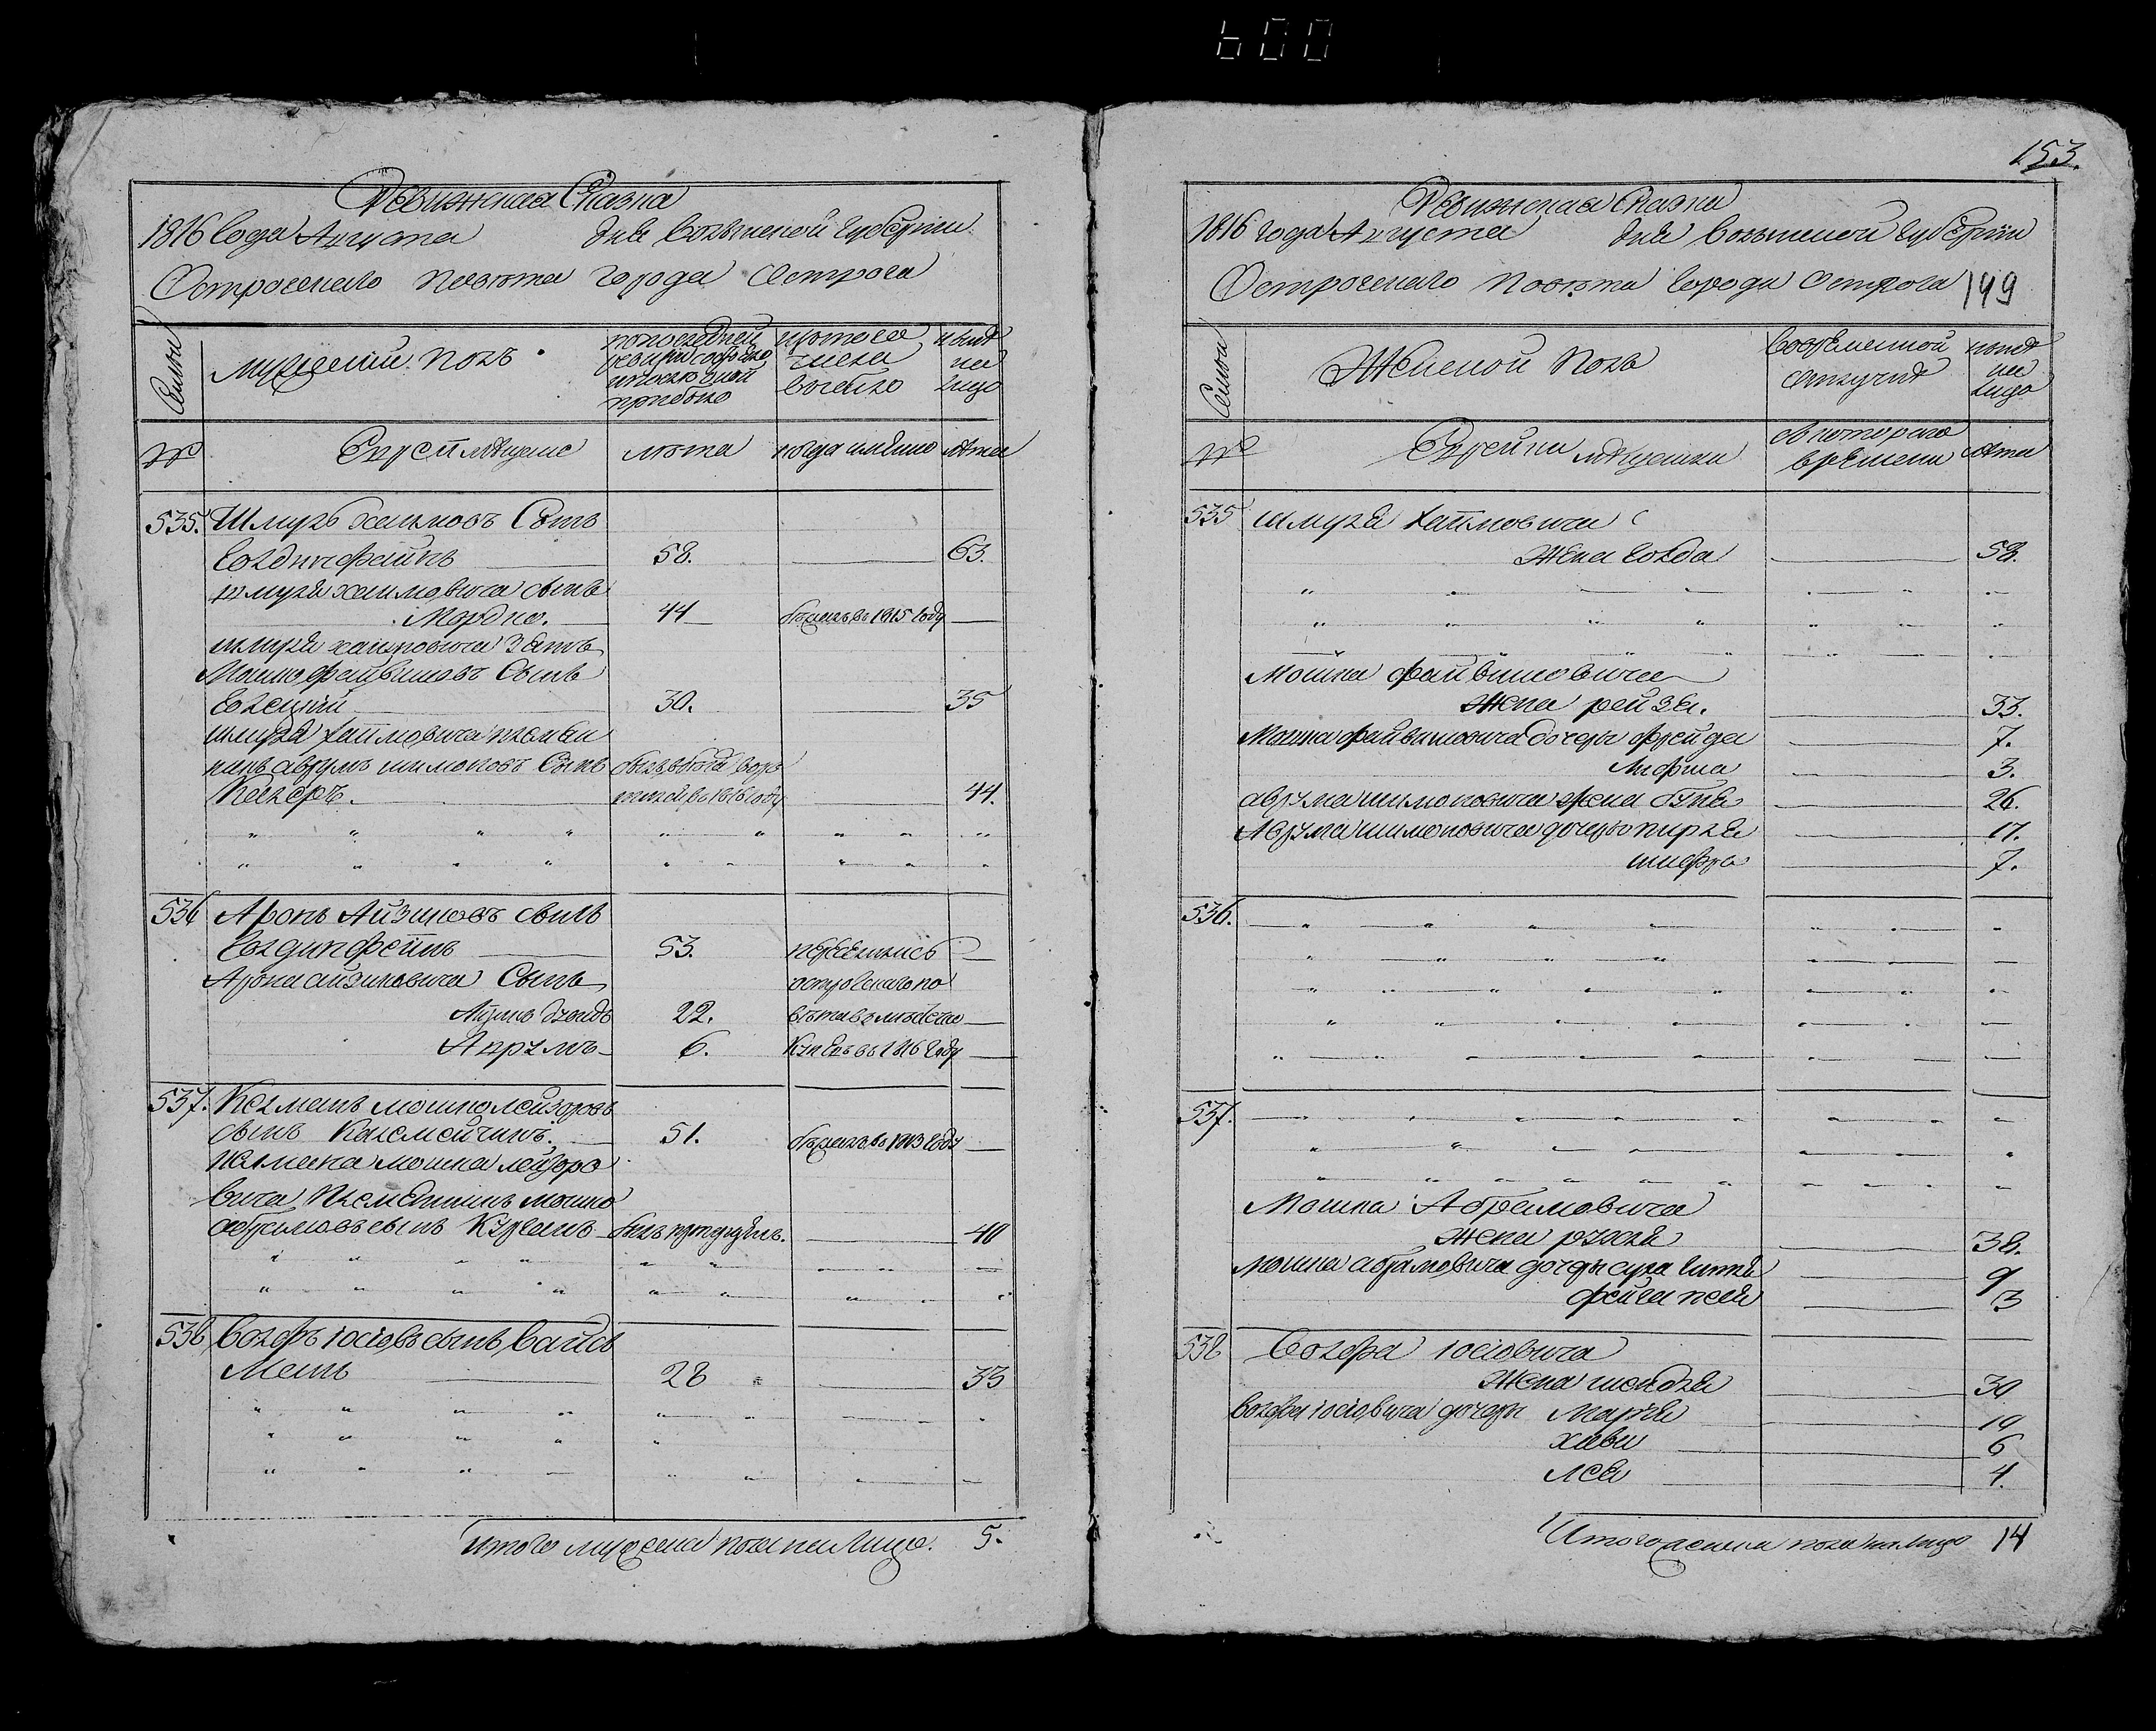 600
Ревижская Сказка
1816 Года Августа дня Волынской Губернии
Острогскаго Повѣта Города Острога
Семьи
Мужеский полъ
по последней ревизии состояло и после оной прибыло
изъ того числа выбыло
ныне на лицо
№
Евреи мещане
лета
когда имянно
лета
535. Шмуль Хаимовъ Сынъ
Голдинфайнъ 58. 63.
Шмуля Хаимовича сынъ
Мордко. 44 1815 Году
Шмуля Хаимовича Зять
Мошко Файвишовъ Сынъ
30. 35
Шмуля Хаимовича племен
никъ Аврумъ Шимоновъ Сынъ
1816 году 44.
536 Аронъ Айзиковъ сынъ
Голдинфейнъ 53. переселились
Арона Айзиковича Сынъ
22.
Аврумъ 6. 1816 Году
537. Келманъ Мошко Лейзоровъ
сынъ 51. 1813 Году
Келмана Мошка Лейзоро
вича Племянникъ Мошко
Абрамовъ сынъ былъ пропущенъ. 40
538 Волфъ Іосіовъ сынъ Вайс
Манъ 28 33
Итого мужеска пола на Лицо. 5.
153.
Ревижская Сказка
1816 года Августа дня Волынской Губернии
Острогскаго Повѣта Города Острога 149
Семьи
Женской Полъ
во временной отлучке
ныне на лицо
№
Еврейки мещанки
съ котораго времени
лета
535 Шмуля Хаимовича
Жена Голда 58.
Мошка Файвишовича
Жена Рейзя. 33.
Мошка Файвишовича дочери Фрейда 7.
3.
Аврума Шимоновича жена 26.
Аврума Шимоновича дочери Пирля 11.
Шифра 7.
536.
537.
Мошка Абрамовича
Жена Рухля 38.
Мошка Абрамовича дочери Сура Гитля 9
3
538 Волфа Іосіовича
Жена Шейндля 30
Волфа Іосіовича дочери Марія 10
Хава 6
Лея 4.
Итого женска пола на лицо 14